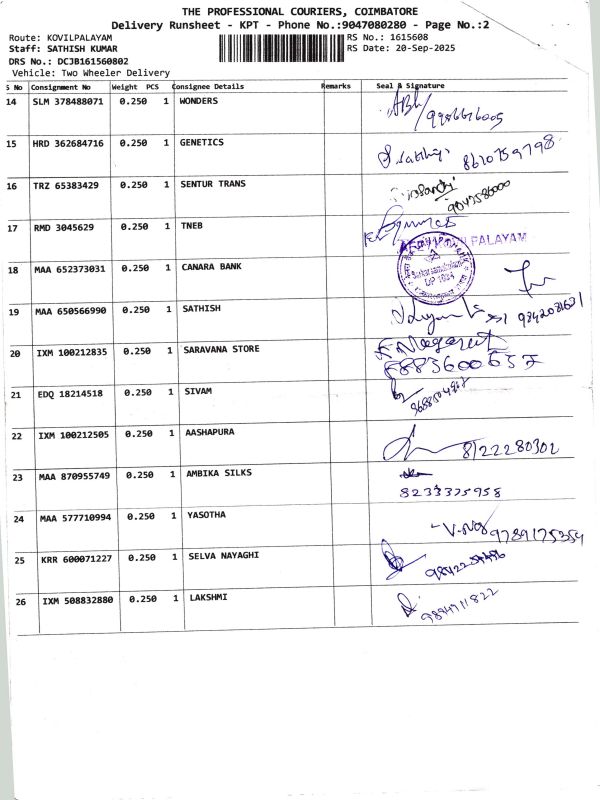 THE PROFESSIONAL COURIERS, COIMBATORE
Delivery Runsheet - KPT - Phone No.:9047080280 - Page No.:2
Route: KOVILPALAYAM RS No.: 1615608
Staff: SATHISH KUMAR RS Date: 20-Sep-2025
DRS No.: DCJB161560802
Vehicle: Two Wheeler Delivery
S No Consignment No Weight PCS Consignee Details Remarks Seal & Signature
14 SLM 378488071 0.250 1 WONDERS
15 HRD 362684716 0.250 1 GENETICS 8610759798
16 TRZ 65383429 0.250 1 SENTUR TRANS
17 RMD 3045629 0.250 1 TNEB
PALAYAM
18 MAA 652373031 0.250 1 CANARA BANK
19 MAA 650566990 0.250 1 SATHISH
20 IXM 100212835 0.250 1 SARAVANA STORE
21 EDQ 18214518 0.250 1 SIVAM
22 IXM 100212505 0.250 1 AASHAPURA 8122280302
23 MAA 870955749 0.250 1 AMBIKA SILKS
8233375958
24 MAA 577710994 0.250 1 YASOTHA
9789175354
25 KRR 600071227 0.250 1 SELVA NAYAGHI
26 IXM 508832880 0.250 1 LAKSHMI